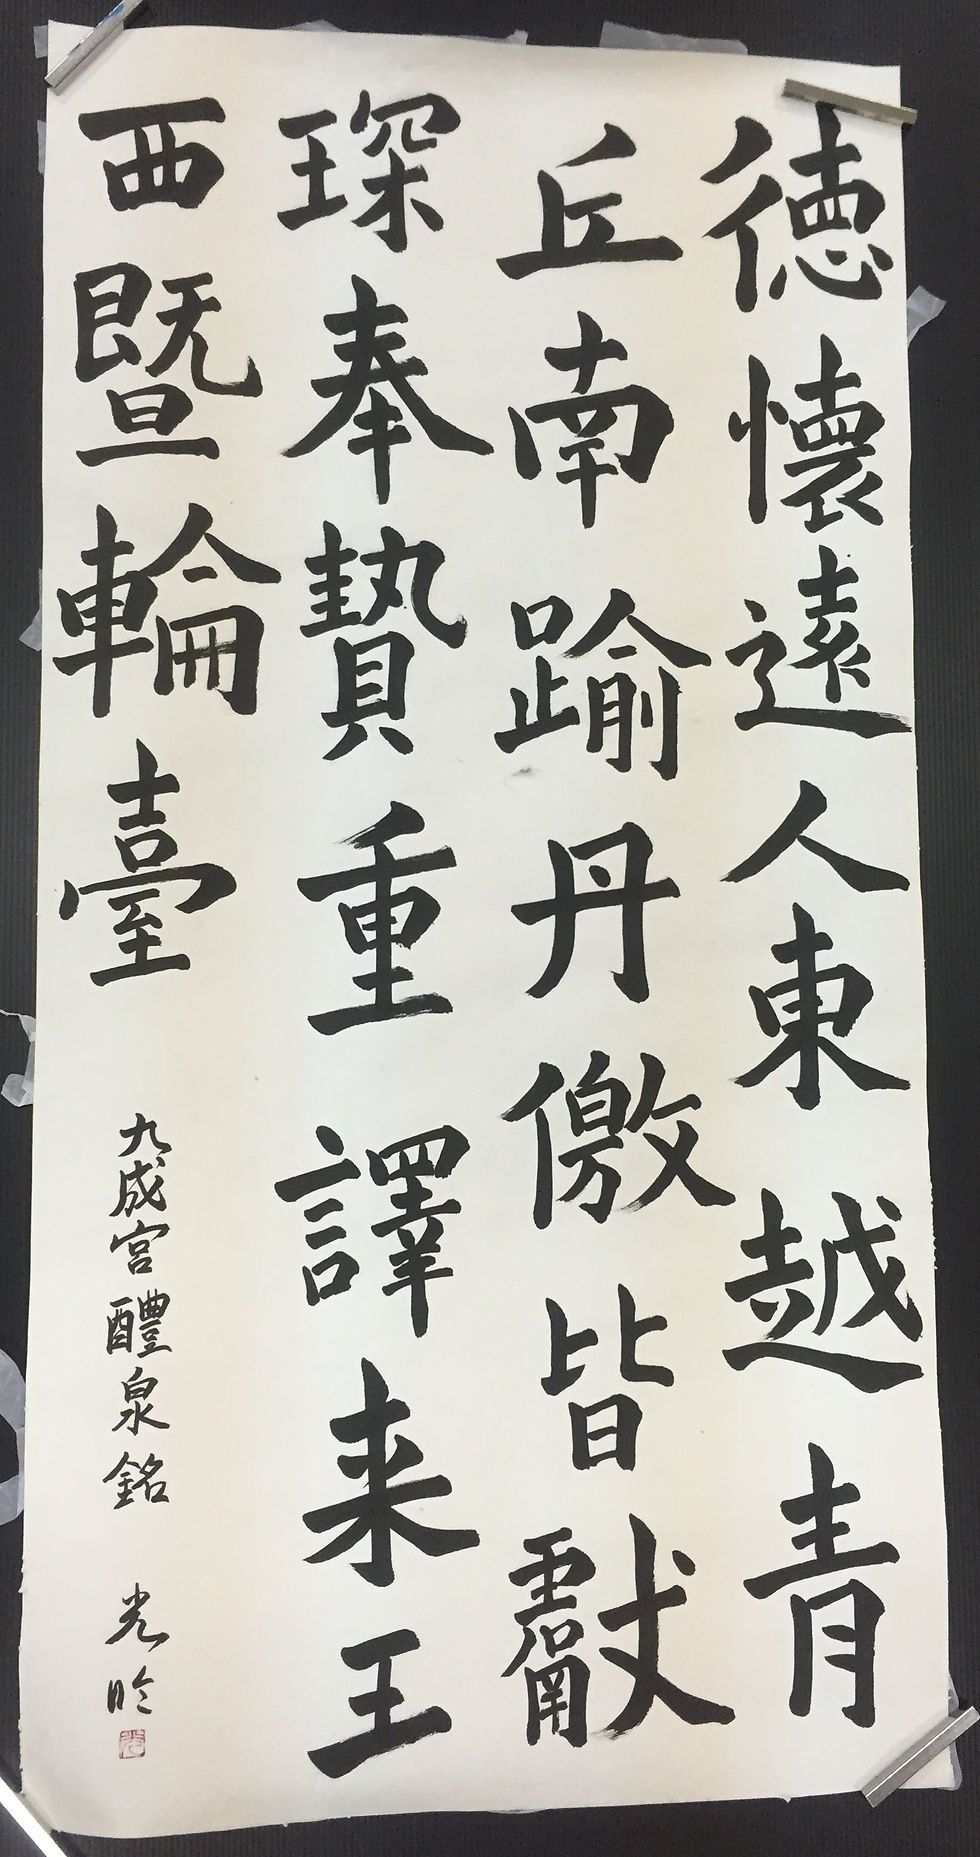 徳懐遠人東越青
丘南踰丹徼皆獻
琛奉贄重譯来王
西暨輪臺
九成宮醴泉銘 光昤